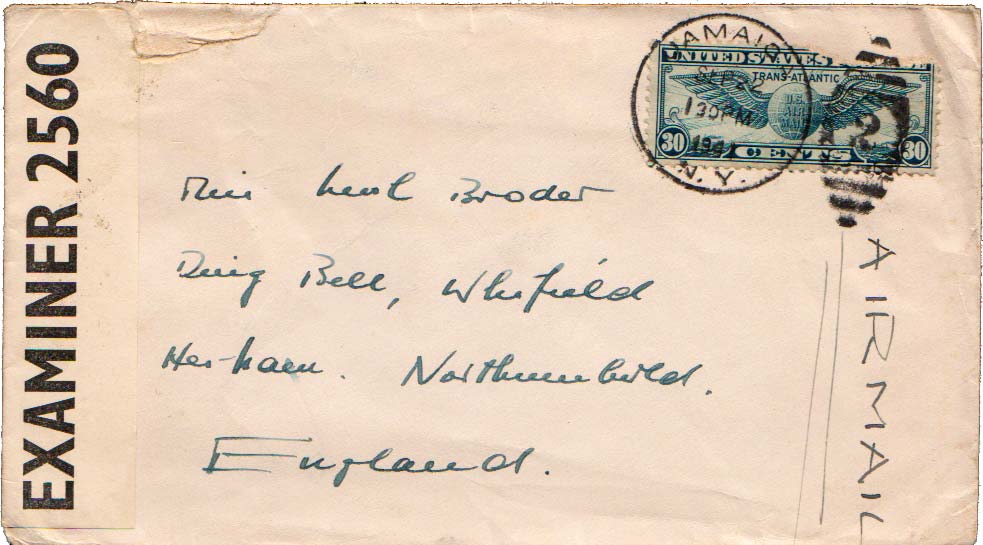 EXAMINER 2560
JAMAICA
SEP 22
1 30 PM
194
N.Y.
UNITED STATES
TRANS-ATLANTIC
U.S.
AIR
MAIL
30 CENTS 30
2
Broder
Bell, Whifield
Northumberld.
England.
AIR MAIL